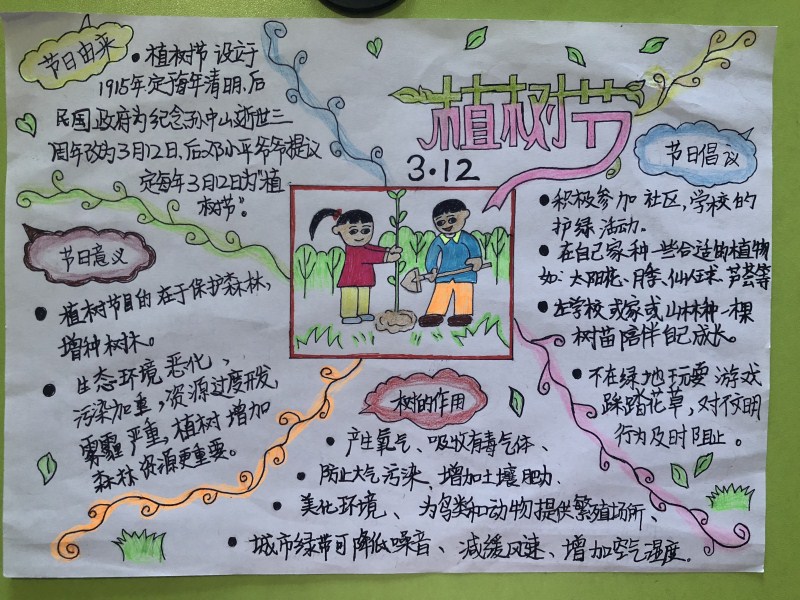 植树节
3·12
节日由来
植树节设立于
1915年定每年清明,后
民国政府为纪念孙中山逝世三
周年改为3月12日,后邓小平爷爷提议
定每年3月12日为"植
树节"。
节日意义
植树节目的在于保护森林,
增种树木。
生态环境恶化,
污染加重,资源过度开发
雾霾严重,植树增加
森林资源更重要。
节日倡议
积极参加社区,学校的
护绿活动。
在自己家种一些合适的植物
如:太阳花、月季、仙人球、芦荟等
在学校或家或山林种一棵
树苗陪伴自己成长。
不在绿地玩耍游戏
踩踏花草,对不文明
行为及时阻止。
树的作用
产生氧气、吸收有毒气体、
防止大气污染、增加土壤肥力、
美化环境、为鸟类和动物提供繁殖场所、
城市绿带可降低噪音、减缓风速、增加空气湿度。